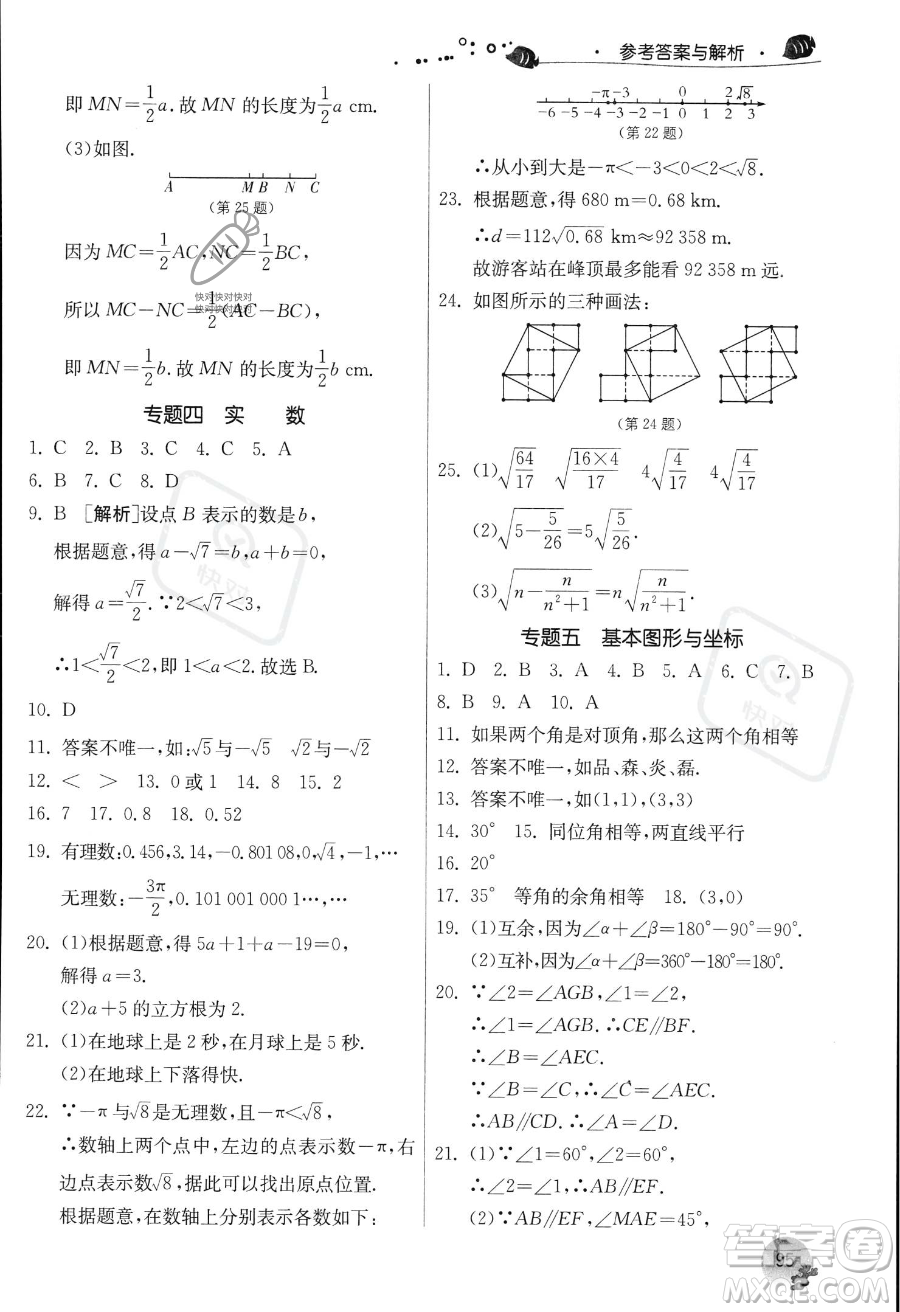 · 参考答案与解析 ·
即 MN=1/2a.故 MN 的长度为1/2a cm.
(3)如图.
A M B N C
(第 25 题)
因为 MC=1/2AC,NC=1/2BC,
快对快对快对
快对快对快对
所以 MC－NC=1/2(AC－BC),
即 MN=1/2b.故 MN 的长度为1/2b cm.
专题四 实 数
1. C 2. B 3. C 4. C 5. A
6. B 7. C 8. D
9. B [解析]设点 B 表示的数是 b,
根据题意,得 a－√7=b,a+b=0,
解得 a=√7/2.∵2<√7<3,
∴1<√7/2<2,即 1<a<2.故选 B.
10. D
11. 答案不唯一,如:√5与－√5 √2与－√2
12. < > 13. 0 或 1 14. 8 15. 4
16. 7 17. 0.8 18. 0.52
19. 有理数:0.456,3.14,－0.801 08,0,√4,－1,…
无理数:－3π/2,0.101 001 000 1…,…
20. (1)根据题意,得 5a+1+a－19=0,
解得 a=3.
(2)a+5 的立方根为 2.
21. (1)在地球上是 2 秒,在月球上是 5 秒.
(2)在地球上下落得快.
22. ∵－π与√8是无理数,且－π<√8,
∴数轴上两个点中,左边的点表示数－π,右
边点表示数√8,因此可以找出原点位置.
根据题意,在数轴上分别表示各数如下:
－π－3 0 2 √8
－6 －5 －4 －3 －2 －1 0 1 2 3
(第 22 题)
∴从小到大是－π<－3<0<2<√8.
23. 根据题意,得 680 m=0.68 km.
∴d=112√0.68 km≈92 358 m.
故游客站在峰顶最多能看 92 358 m 远.
24. 如图所示的三种画法:
(第 24 题)
25. (1)√(64/17) √((16×4)/17) 4√(4/17) 4√(4/17)
(2)√(5－5/26)=5√(5/26)
(3)√(n－n/(n²+1))=n√(n/(n²+1))
专题五 基本图形与坐标
1. D 2. B 3. A 4. B 5. A 6. C 7. B
8. B 9. A 10. A
11. 如果两个角是对顶角,那么这两个角相等
12. 答案不唯一,如品、森、炎、磊.
13. 答案不唯一,如(1,1),(3,3)
14. 30° 15. 同位角相等,两直线平行
16. 20°
17. 35° 等角的余角相等 18. (3,0)
19. (1)互余,因为∠α+∠β=180°－90°=90°.
(2)互补,因为∠α+∠β=360°－180°=180°.
20. ∵∠2=∠AGB,∠1=∠2,
∴∠1=∠AGB.∴CE//BF.
∴∠B=∠AEC.
∵∠B=∠C,∴∠C=∠AEC.
∴AB//CD.∴∠A=∠D.
21. (1)∵∠1=60°,∴∠2=60°.
(2)∵AB//EF,∠MAE=45°,
95
快对
快对
答案圈
MXQE.COM